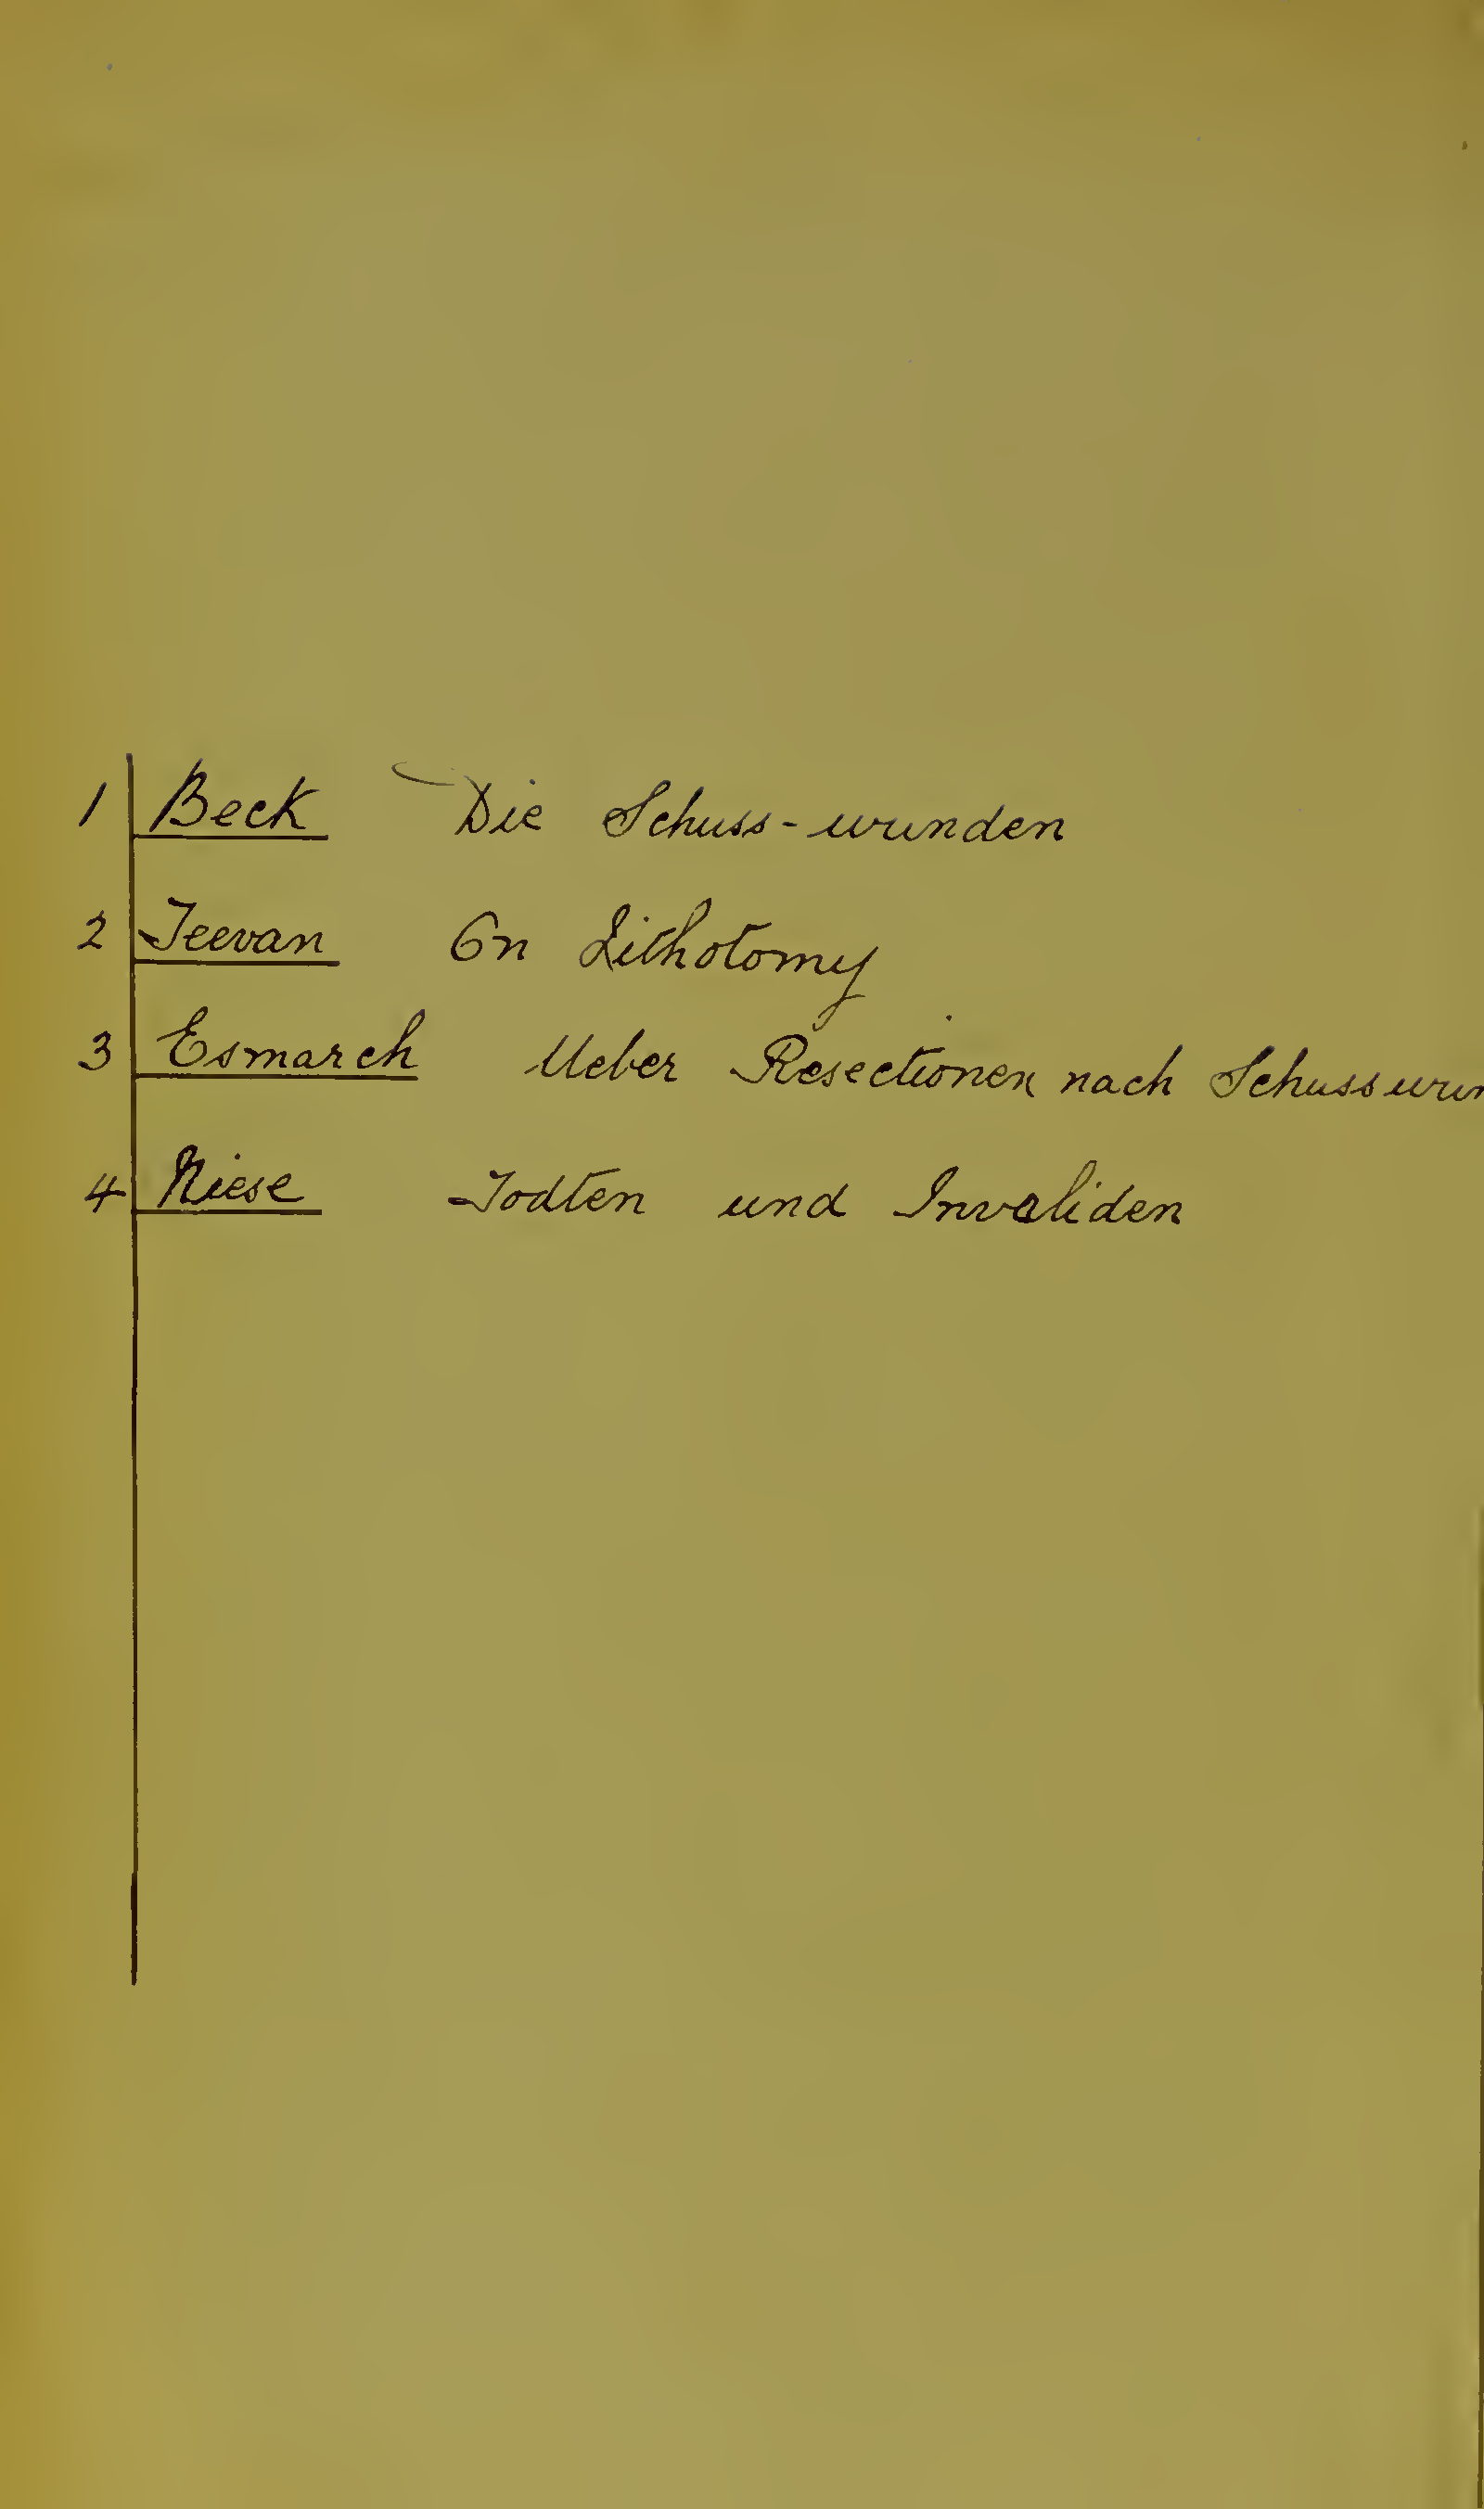 1 Beck Die Schuss-wunden
2 Teevan On Lithotomy
3 Esmarch Ueber Resectionen nach Schusswun
4 Niese Todten und Invaliden